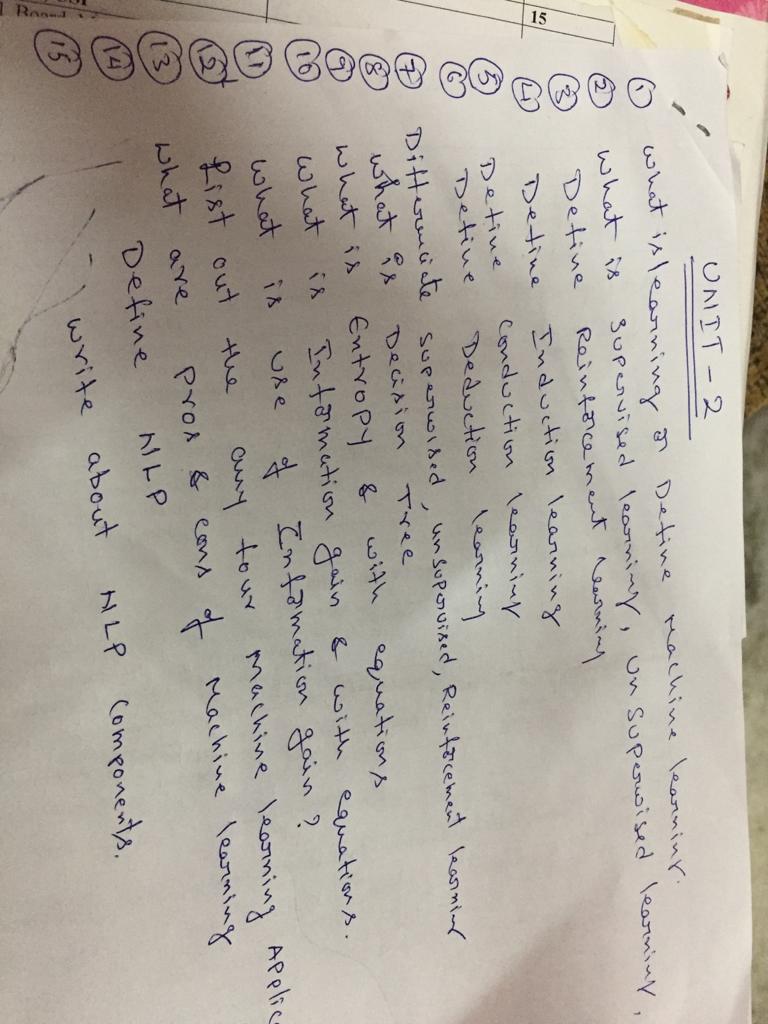 15
UNIT-2
① What is learning or Define Machine learning.
② What is Supervised learning, Un Supervised learning,
③ Define Reinforcement learning
④ Define Induction learning
⑤ Define Conduction learning
⑥ Define Deduction learning
⑦ Differenciate Supervised, unsupervised, Reinforcement learning
⑧ What is Decision Tree
⑨ What is Entropy & with equations
⑩ What is Information gain & with equations.
⑪ What is use of Information gain?
⑫ List out the any four Machine learning Applic
⑬ What are pros & cons of Machine learning
⑭ Define NLP
⑮ Write about NLP Components.